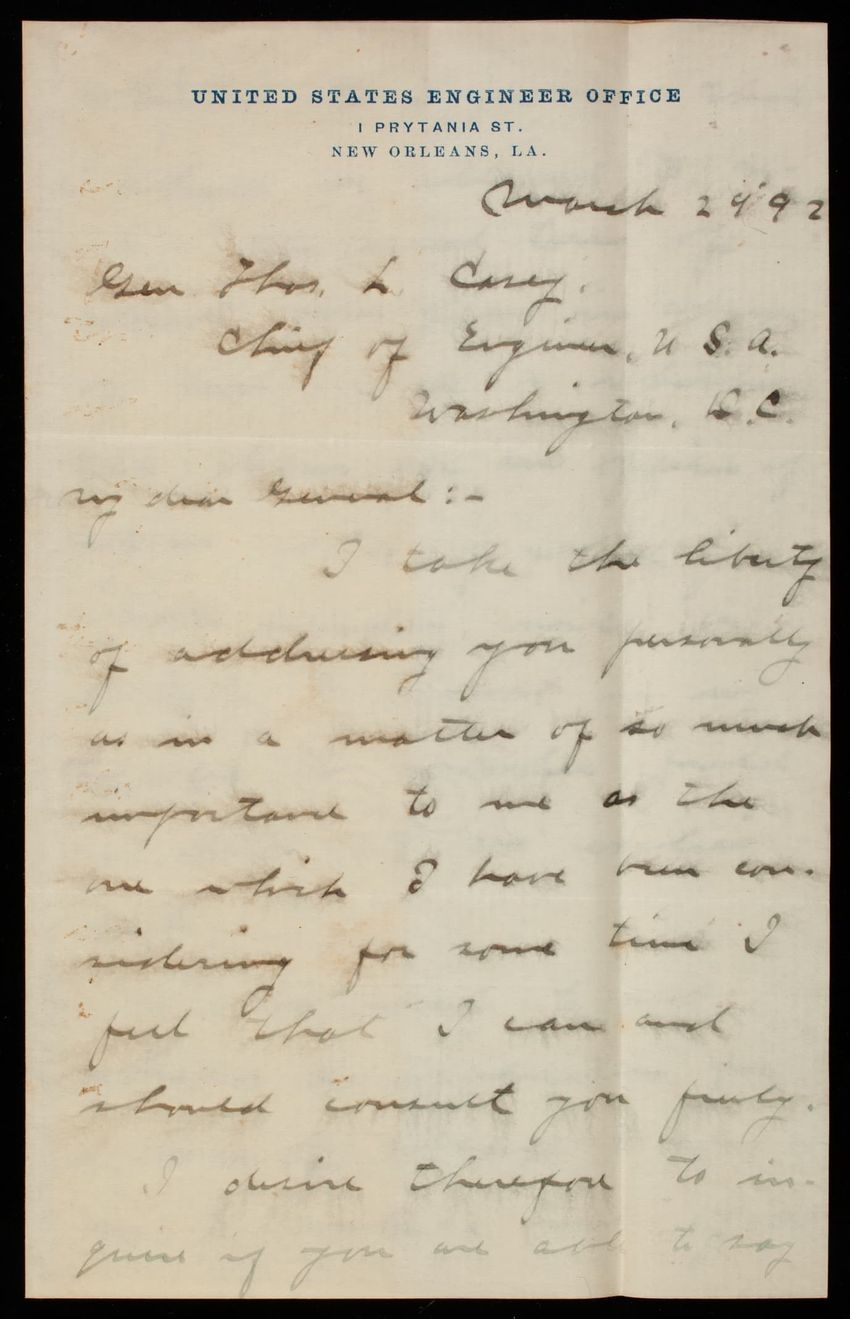 UNITED STATES ENGINEER OFFICE
1 PRYTANIA ST.
NEW ORLEANS, LA.
March 29 92
Gen Thos. L Casey.
Chief of Engineer, U S. A.
Washington, D.C.
My dear General:-
I take the liberty
of addressing you personally
as in a matter of so much
importance to me as the
one which I have been con-
sidering for some time I
feel that I can and
should consult you freely.
I desire therefore to in-
quire if you are able to say